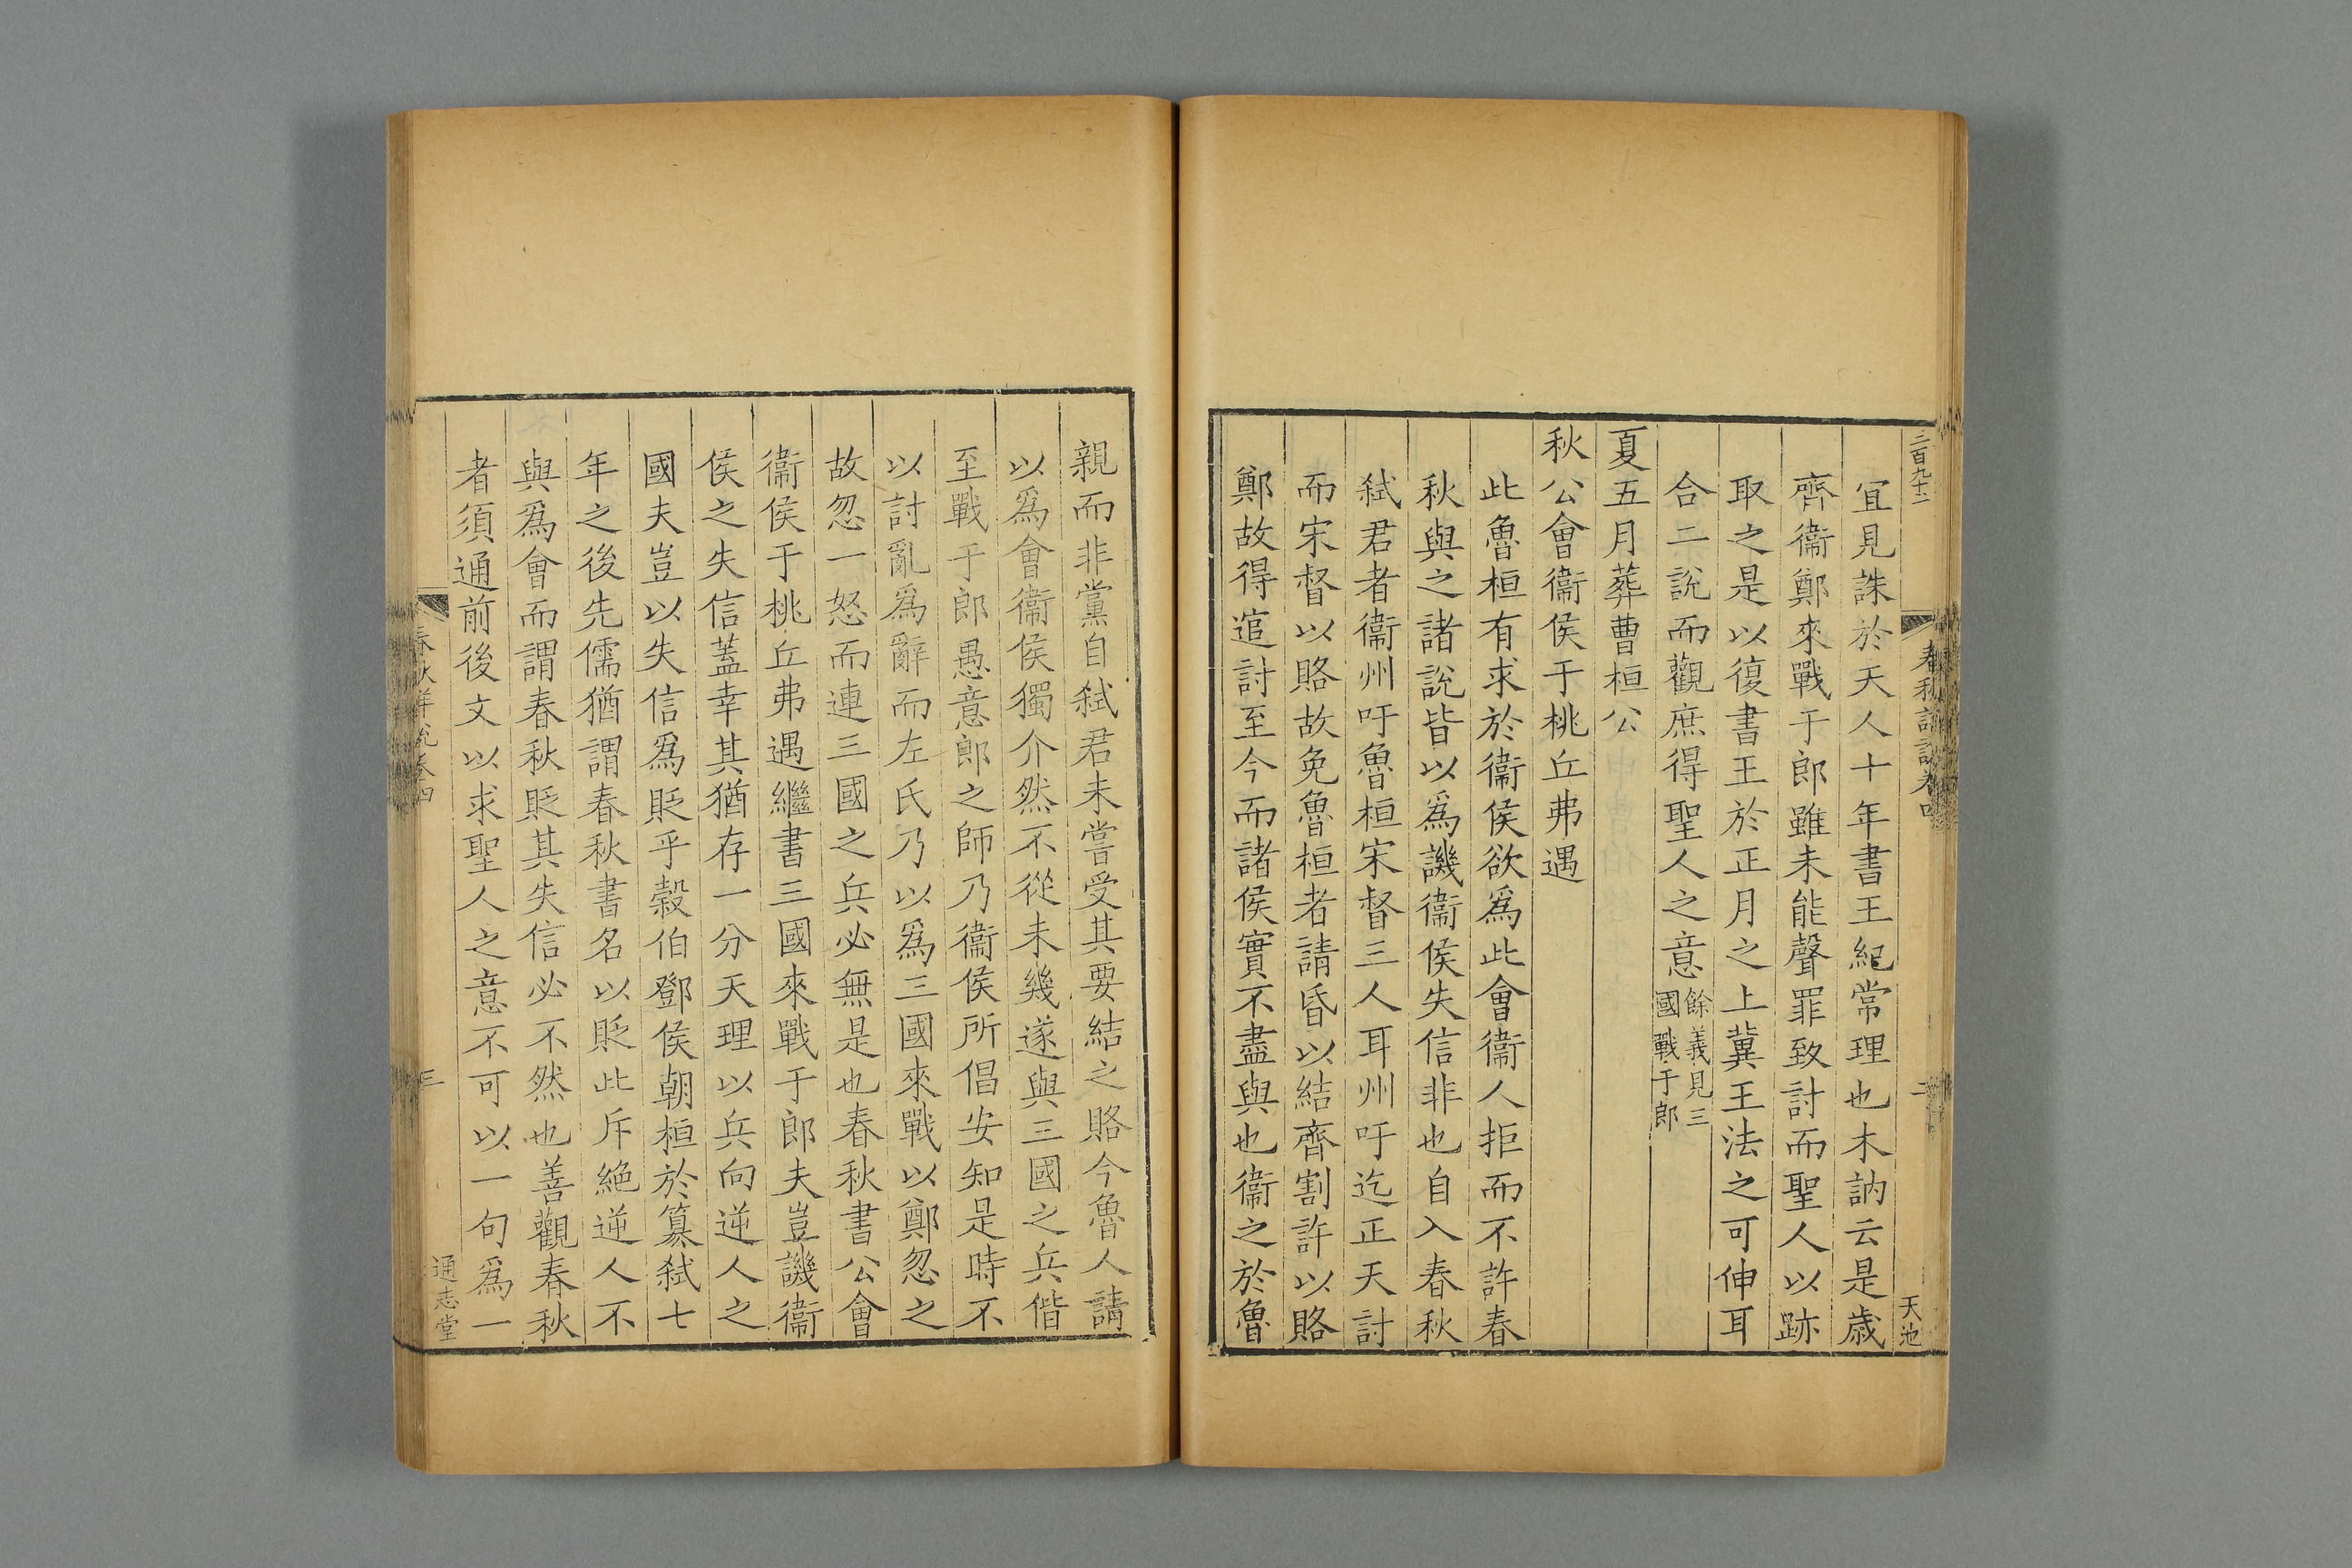 三百九十二
春秋詳說卷四
二
天池
宜見誅於天人十年書王紀常理也木訥云是歲
齊衞鄭來戰于郎雖未能聲罪致討而聖人以跡
取之是以復書王於正月之上冀王法之可伸耳
合二說而觀庶得聖人之意餘義見三國戰于郎
夏五月葬曹桓公
秋公會衞侯于桃丘弗遇
此魯桓有求於衞侯欲爲此會衞人拒而不許春
秋與之諸說皆以爲譏衞侯失信非也自入春秋
弑君者衞州吁魯桓宋督三人耳州吁迄正天討
而宋督以賂故免魯桓者請昏以結齊割許以賂
鄭故得逭討至今而諸侯實不盡與也衞之於魯
親而非黨自弑君未嘗受其要結之賂今魯人請
以爲會衞侯獨介然不從未幾遂與三國之兵偕
至戰于郎愚意郎之師乃衞侯所倡安知是時不
以討亂爲辭而左氏乃以爲三國來戰以鄭忽之
故忽一怒而連三國之兵必無是也春秋書公會
衞侯于桃丘弗遇繼書三國來戰于郎夫豈譏衞
侯之失信蓋幸其猶存一分天理以兵向逆人之
國夫豈以失信爲貶乎穀伯鄧侯朝桓於篡弑七
年之後先儒猶謂春秋書名以貶此斥絕逆人不
與爲會而謂春秋貶其失信必不然也善觀春秋
者須通前後文以求聖人之意不可以一句爲一
春秋詳說卷四
三
通志堂